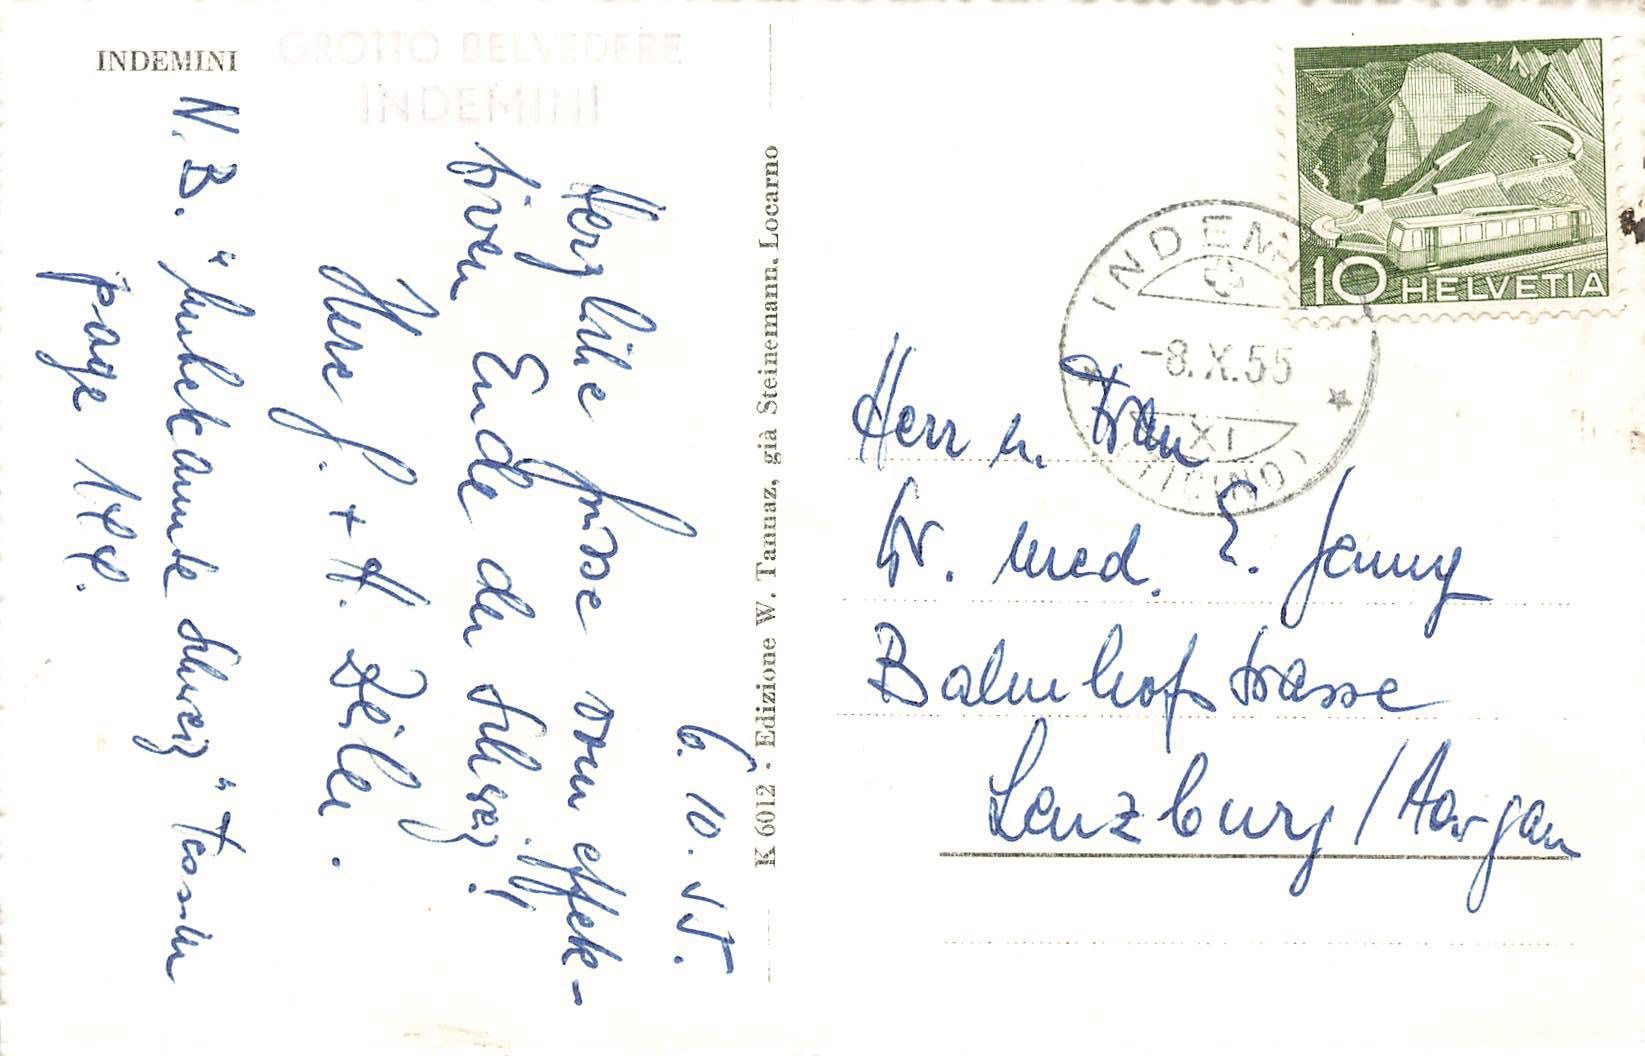 INDEMINI
GROTTO BELVEDERE
INDEMINI
6. 10. 55.
Herzliche Grüsse vom effek-
tiven Ende der Schweiz!!
Ihre J. + H. Zeiler.
N.B. "Unbekannte Schweiz" Tessin
page 144.
K 6012 - Edizione W. Tannaz, già Steinemann, Locarno
10 HELVETIA
INDEMINI
-8.X.55
XI
(TICINO)
Herr u. Frau
Dr. med. E. Jenny
Bahnhofstrasse
Lenzburg / Aargau